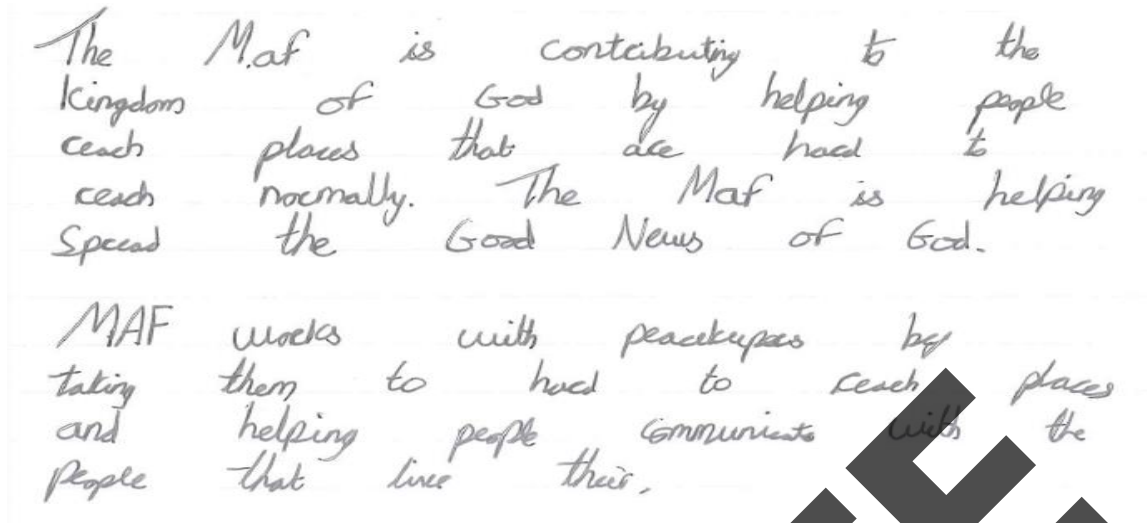 The Maf is contributing to the
Kingdom of God by helping people
reach places that are hard to
reach normally. The Maf is helping
Spread the Good News of God.
MAF works with peacekeepers by
taking them to hard to reach places
and helping people communicate with the
people that live their.